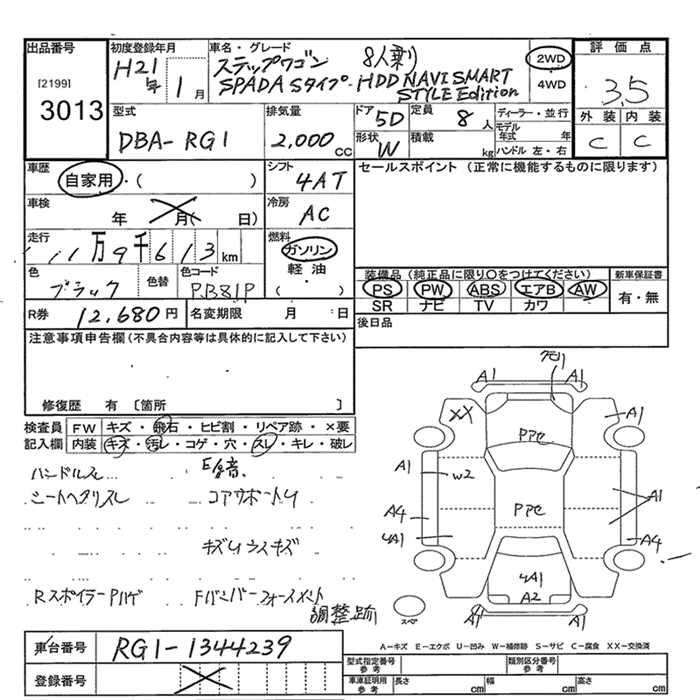 出品番号
[2199]
3013
初度登録年月
H21年 1月
車名・グレード
ステップワゴン 8人乗り
SPADA Sタイプ・HDD NAVI SMART
STYLE Edition
2WD
4WD
評価点
3.5
外装 内装
C C
型式
DBA-RG1
排気量
2,000 cc
ドア
5D
定員
8人
形状
W
積載
kg
ディーラー・並行
モデル年式 年
ハンドル 左・右
車歴
自家用・( )
シフト
4AT
セールスポイント (正常に機能するものに限ります)
車検
年 月( 日)
冷房
AC
走行
11万9千613km
燃料
ガソリン
軽油
( )
色
ブラック
色替
色コード
P.B81P
装備品 (純正品に限り○をつけてください)
PS PW ABS エアB AW
SR ナビ TV カワ
新車保証書
有・無
R券 12,680円
名変期限 月 日
後日品
注意事項申告欄(不具合内容等は具体的に記入して下さい)
修復歴 有 〔箇所 〕
検査員記入欄
FW キズ・飛石・ヒビ割・リペア跡・×要
内装 キズ・汚レ・コゲ・穴・スレ・キレ・破レ
ハンドルスレ
E異音
シートヘタリスレ
コアサポートU
キズUウスキズ
Rスポイラー Pハゲ
Fバンパーフォースメント
調整跡
A1 A1
XX A1
PPセ
A1 W2
PPセ
A1
A4
4A1
A4
4A1
A2
スペア
A1 A1
車台番号
RG1-1344239
登録番号
A-キズ E-エクボ U-凹み W-補修跡 S-サビ C-腐食 XX-交換済
型式指定番号 参考
類別区分番号 参考
車庫証明用 参考
長さ cm 幅 cm 高さ cm